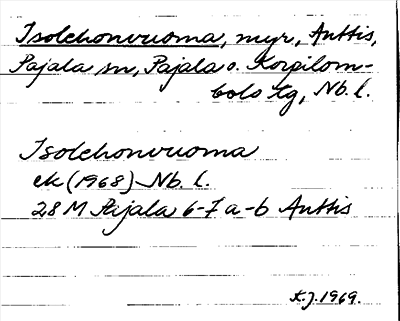 Isolehonvuoma, myr, Anttis,
Pajala sn, Pajala o. Korpilom-
bolo tg, Nb. l.
Isolehonvuoma
ek (1968) Nb. l.
28 M Pajala 6-7 a-b Anttis
K.J. 1969.